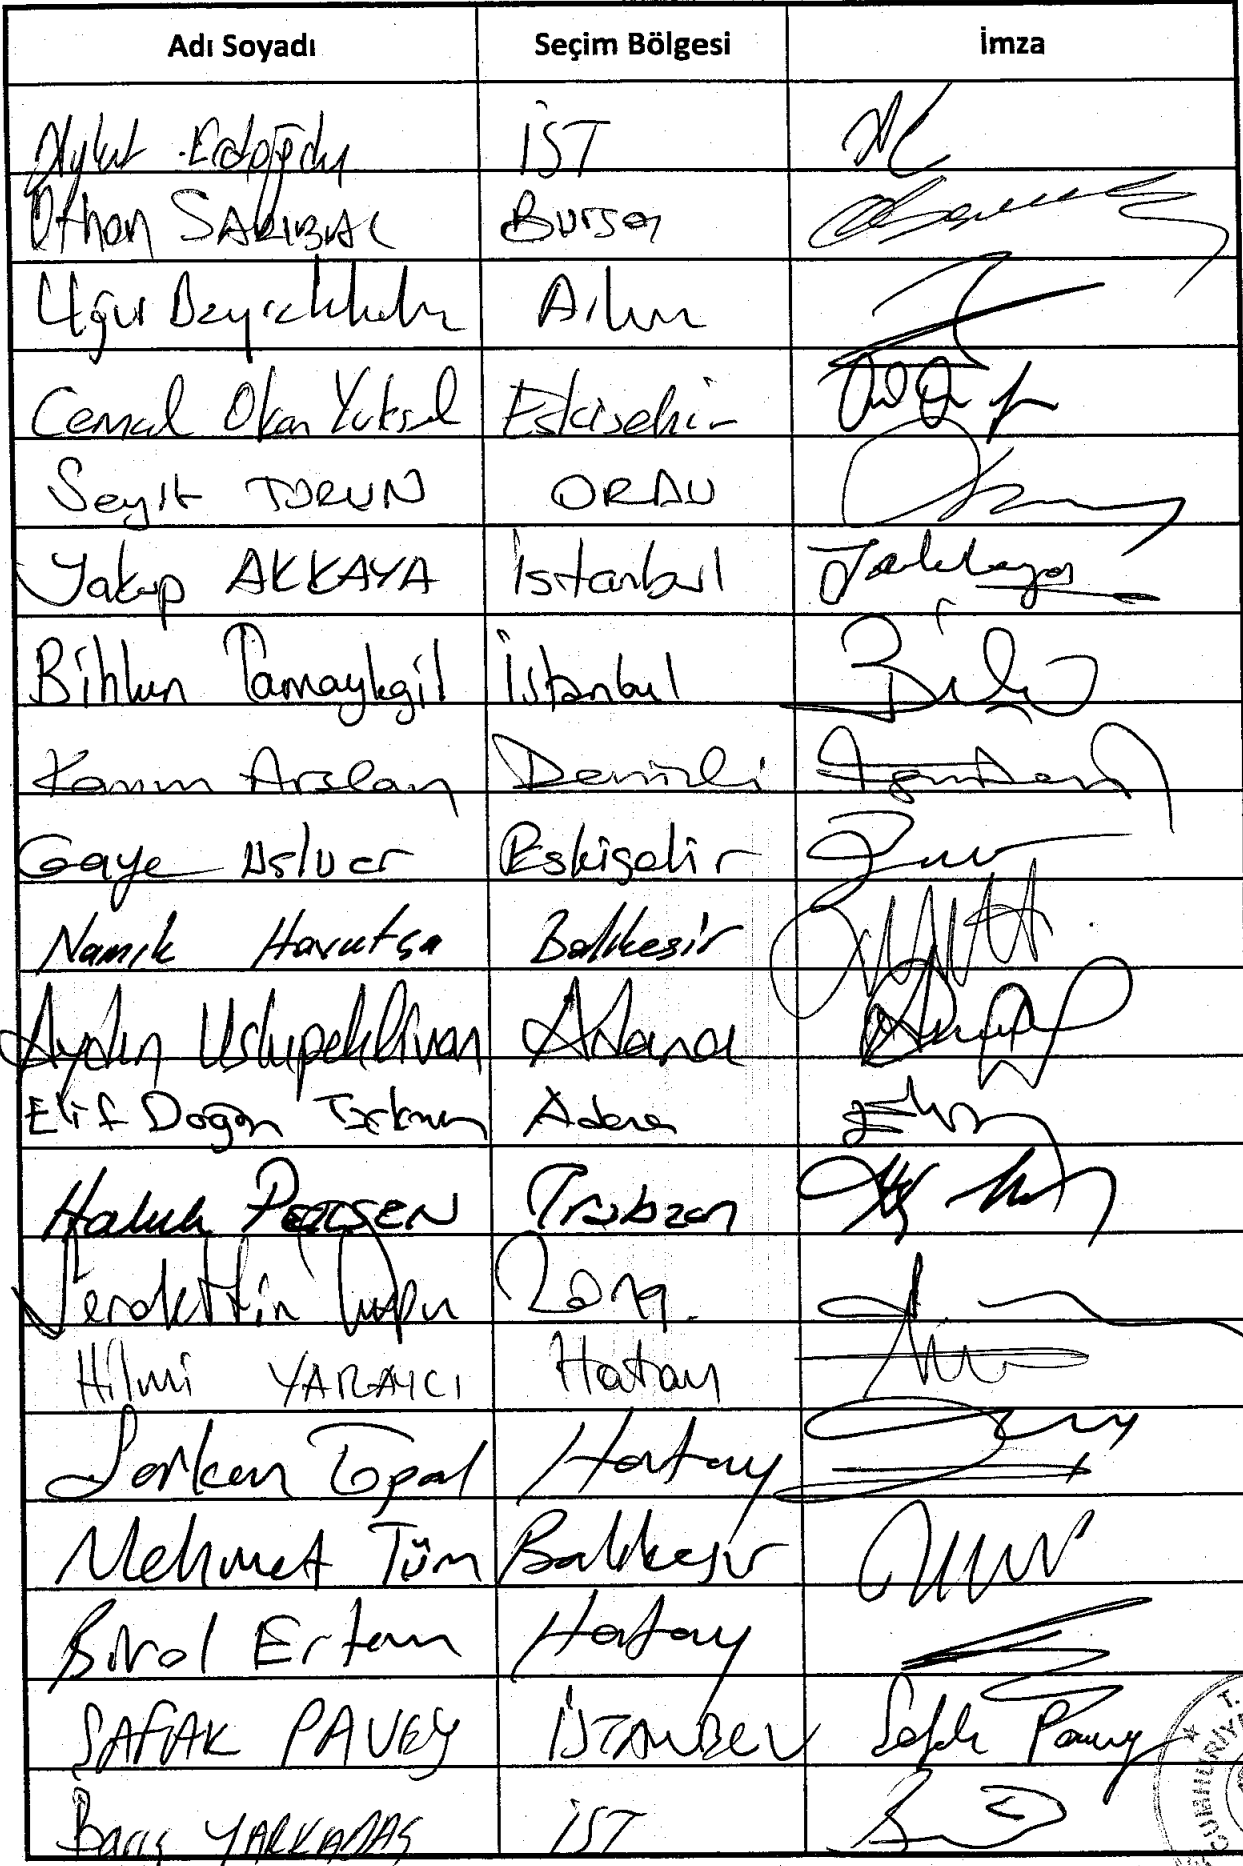 Adı Soyadı Seçim Bölgesi İmza
Aykut Erdoğdu İST
Orhan SARIBAL Bursa
Uğur Bayraktutan
Cemal Okan Yüksel Eskişehir
Seyit TORUN ORDU
Yakup AKKAYA İstanbul
Bihlun Tamaylıgil İstanbul
Kazım Arslan Denizli
Gaye Usluer Eskişehir
Namık Havutça Balıkesir
Aydın Uslupehlivan Adana
Elif Doğan Türkmen Adana
Haluk PEKŞEN Trabzon
Şerafettin Turpcu Zong.
Hilmi YARAYICI Hatay
Serkan Topal Hatay
Mehmet Tüm Balıkesir
Birol Ertem Hatay
ŞAFAK PAVEY İSTANBUL Safak Pavey
Barış YARKADAŞ İST
T.
CUMHURİY